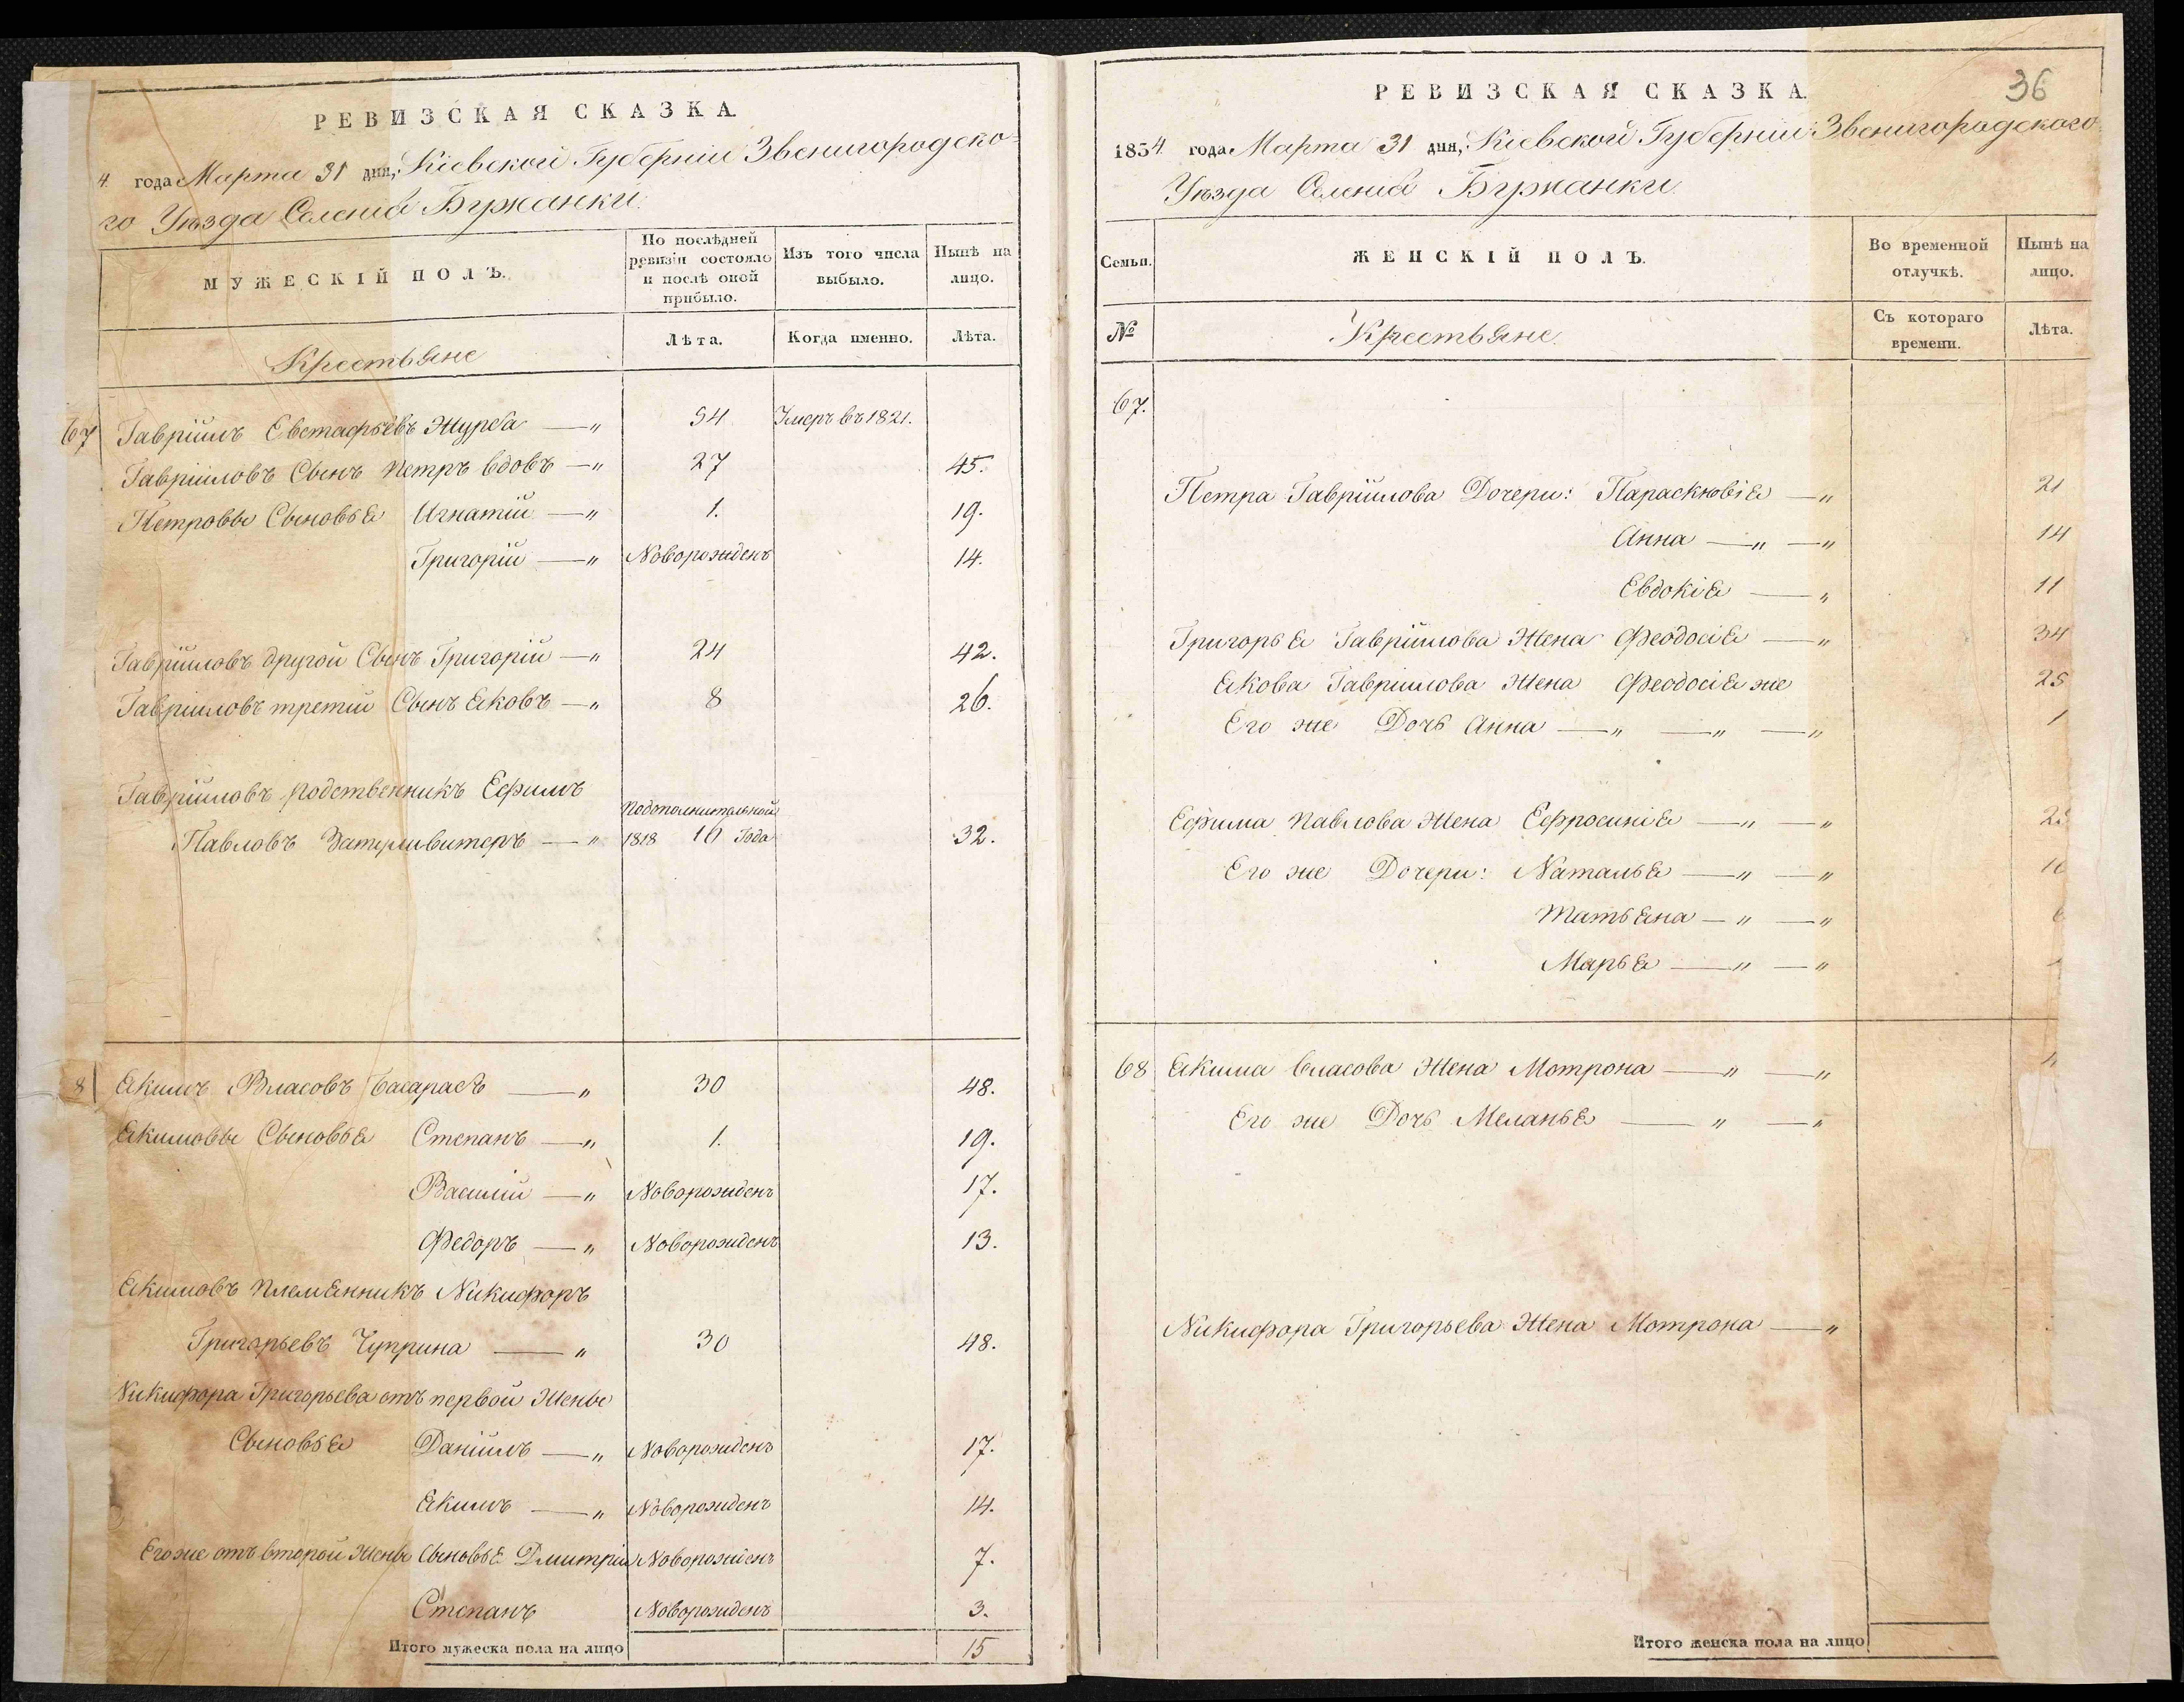 РЕВИЗСКАЯ СКАЗКА.
4. года Марта 31 дня, Кіевской Губерніи Звенигородско-
го Уѣзда Селенія Буржанки.
МУЖЕСКІЙ ПОЛЪ.
По послѣдней ревизіи состояло и послѣ оной прибыло.
Изъ того числа выбыло.
Нынѣ на лицо.
Крестьяне
Лѣта.
Когда именно.
Лѣта.
67 Гавріилъ Евстафьевъ Журба —„ 54 Умеръ въ 1821.
Гавріиловъ Сынъ Петръ вдовъ —„ 27 45.
Петровы Сыновья Игнатій —„ 1. 19.
Григорій —„ Новорожденъ 14.
Гавріиловъ другой Сынъ Григорій —„ 24 42.
Гавріиловъ третій Сынъ Яковъ —„ 8 26.
Гавріиловъ родственникъ Ефимъ
Павловъ —„ 1818 Года 32.
8 Якимъ Власовъ Басарабъ —„ 30 48.
Якимовы Сыновья Степанъ —„ 1. 19.
Василій —„ Новорожденъ 17.
Федоръ —„ Новорожденъ 13.
Якимовъ племянникъ Никифоръ
Григорьевъ Чуприна —„ 30 48.
Никифора Григорьева отъ первой Жены
Сыновья Даніилъ —„ Новорожденъ 17.
Якимъ —„ Новорожденъ 14.
Его же отъ второй Жены Сыновья Дмитрій Новорожденъ 7.
Степанъ Новорожденъ 3.
Итого мужеска пола на лицо 15
36
РЕВИЗСКАЯ СКАЗКА.
1834. года Марта 31 дня, Кіевской Губерніи Звенигородского
Уѣзда Селенія Буржанки.
Семьи.
ЖЕНСКІЙ ПОЛЪ.
Во временной отлучкѣ.
Нынѣ на лицо.
№
Крестьяне.
Съ котораго времени.
Лѣта.
67.
Петра Гавріилова Дочери: Параскювія —„ 21
Анна —„ —„ 14
Евдокія —„ 11
Григорья Гавріилова Жена Феодосія —„ 34
Якова Гавріилова Жена Феодосія же 25
Его же Дочь Анна —„ —„ —„ 1
Ефима Павлова Жена Ефросинія —„ —„
Его же Дочери: Наталья —„ —„
Татьяна —„ —„
Марья —„ —„
68 Якима Власова Жена Мотрона —„ —„
Его же Дочь Меланья —„ —„
Никифора Григорьева Жена Мотрона —„
Итого женска пола на лицо